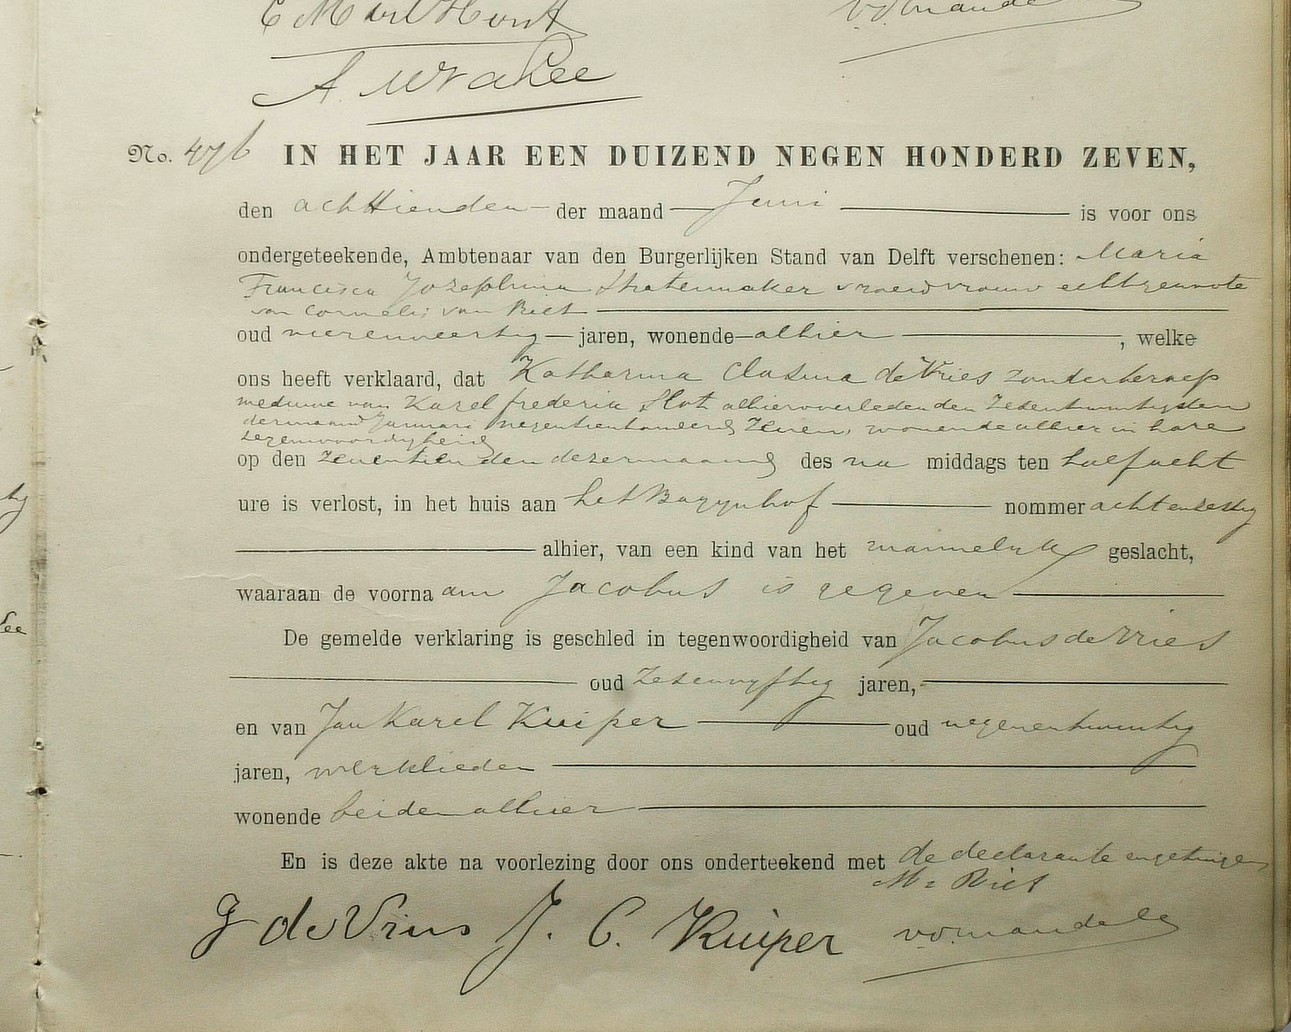 E M van Horst
A. 
No. 476 IN HET JAAR EEN DUIZEND NEGEN HONDERD ZEVEN,
den achttienden der maand Juni is voor ons
ondergeteekende, Ambtenaar van den Burgerlijken Stand van Delft verschenen: Maria
Francisca Jozephina Stratenmaker vroedvrouw echtgenoote
van Cornelis van Riet
oud vierenveertig jaren, wonende alhier, welke
ons heeft verklaard, dat Katharina Clasina de Vries zonder beroep
weduwe van Karel frederik Slot alhier overleden den zesentwintigsten
der maand Januari negentienhonderd zeven, wonende alhier in hare
tegenwoordigheid
op den zeventienden dezer maand des na middags ten half acht
ure is verlost, in het huis aan het Bagynhof nommer achtenzestig
alhier, van een kind van het mannelijk geslacht,
waaraan de voornaam Jacobus is gegeven
De gemelde verklaring is geschied in tegenwoordigheid van Jacobus de Vries
oud zesenvyftig jaren,
en van Jan Karel Kuiper oud negenentwintig
jaren, werklieden
wonende beiden alhier
En is deze akte na voorlezing door ons onderteekend met de declarante en getuigen
Riet
J de Vries J. C. Kuiper